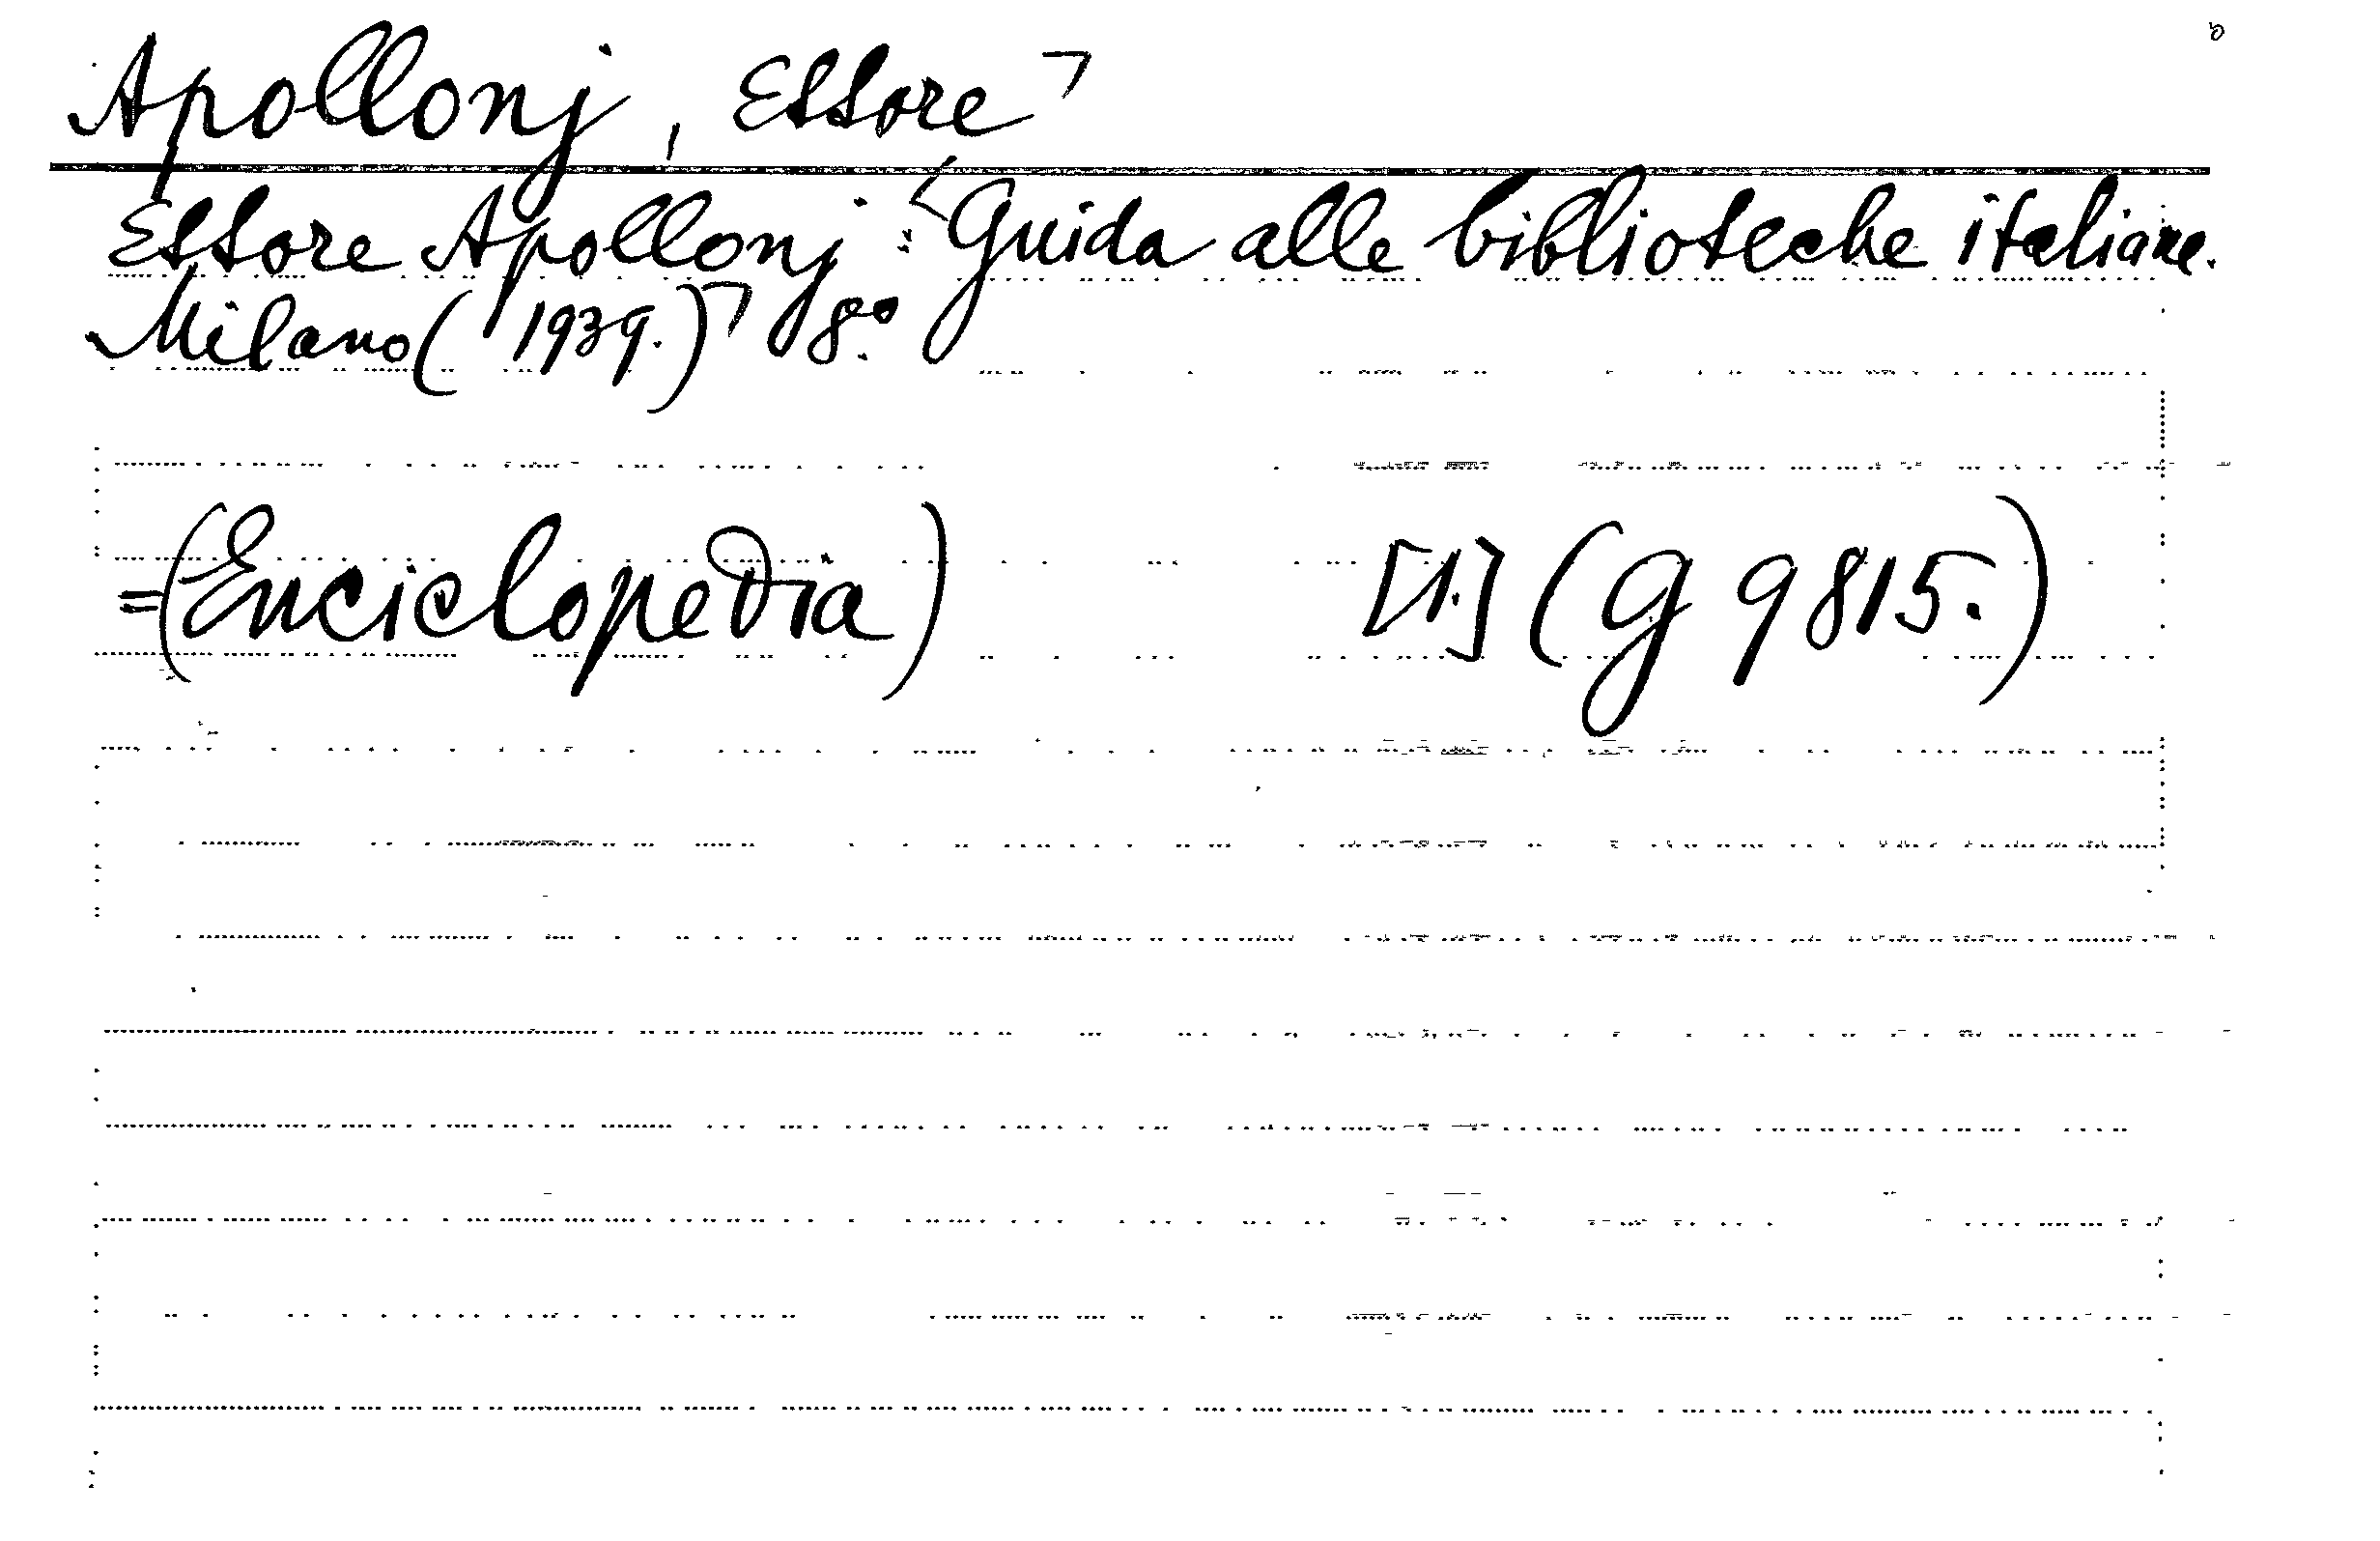 Apollonj, Ettore ¬
Ettore Apollonj: Guida alle biblioteche italiane.
Milano (1939.) ¬ 8°.
=(Enciclopedia) [1.] (G 9815.)